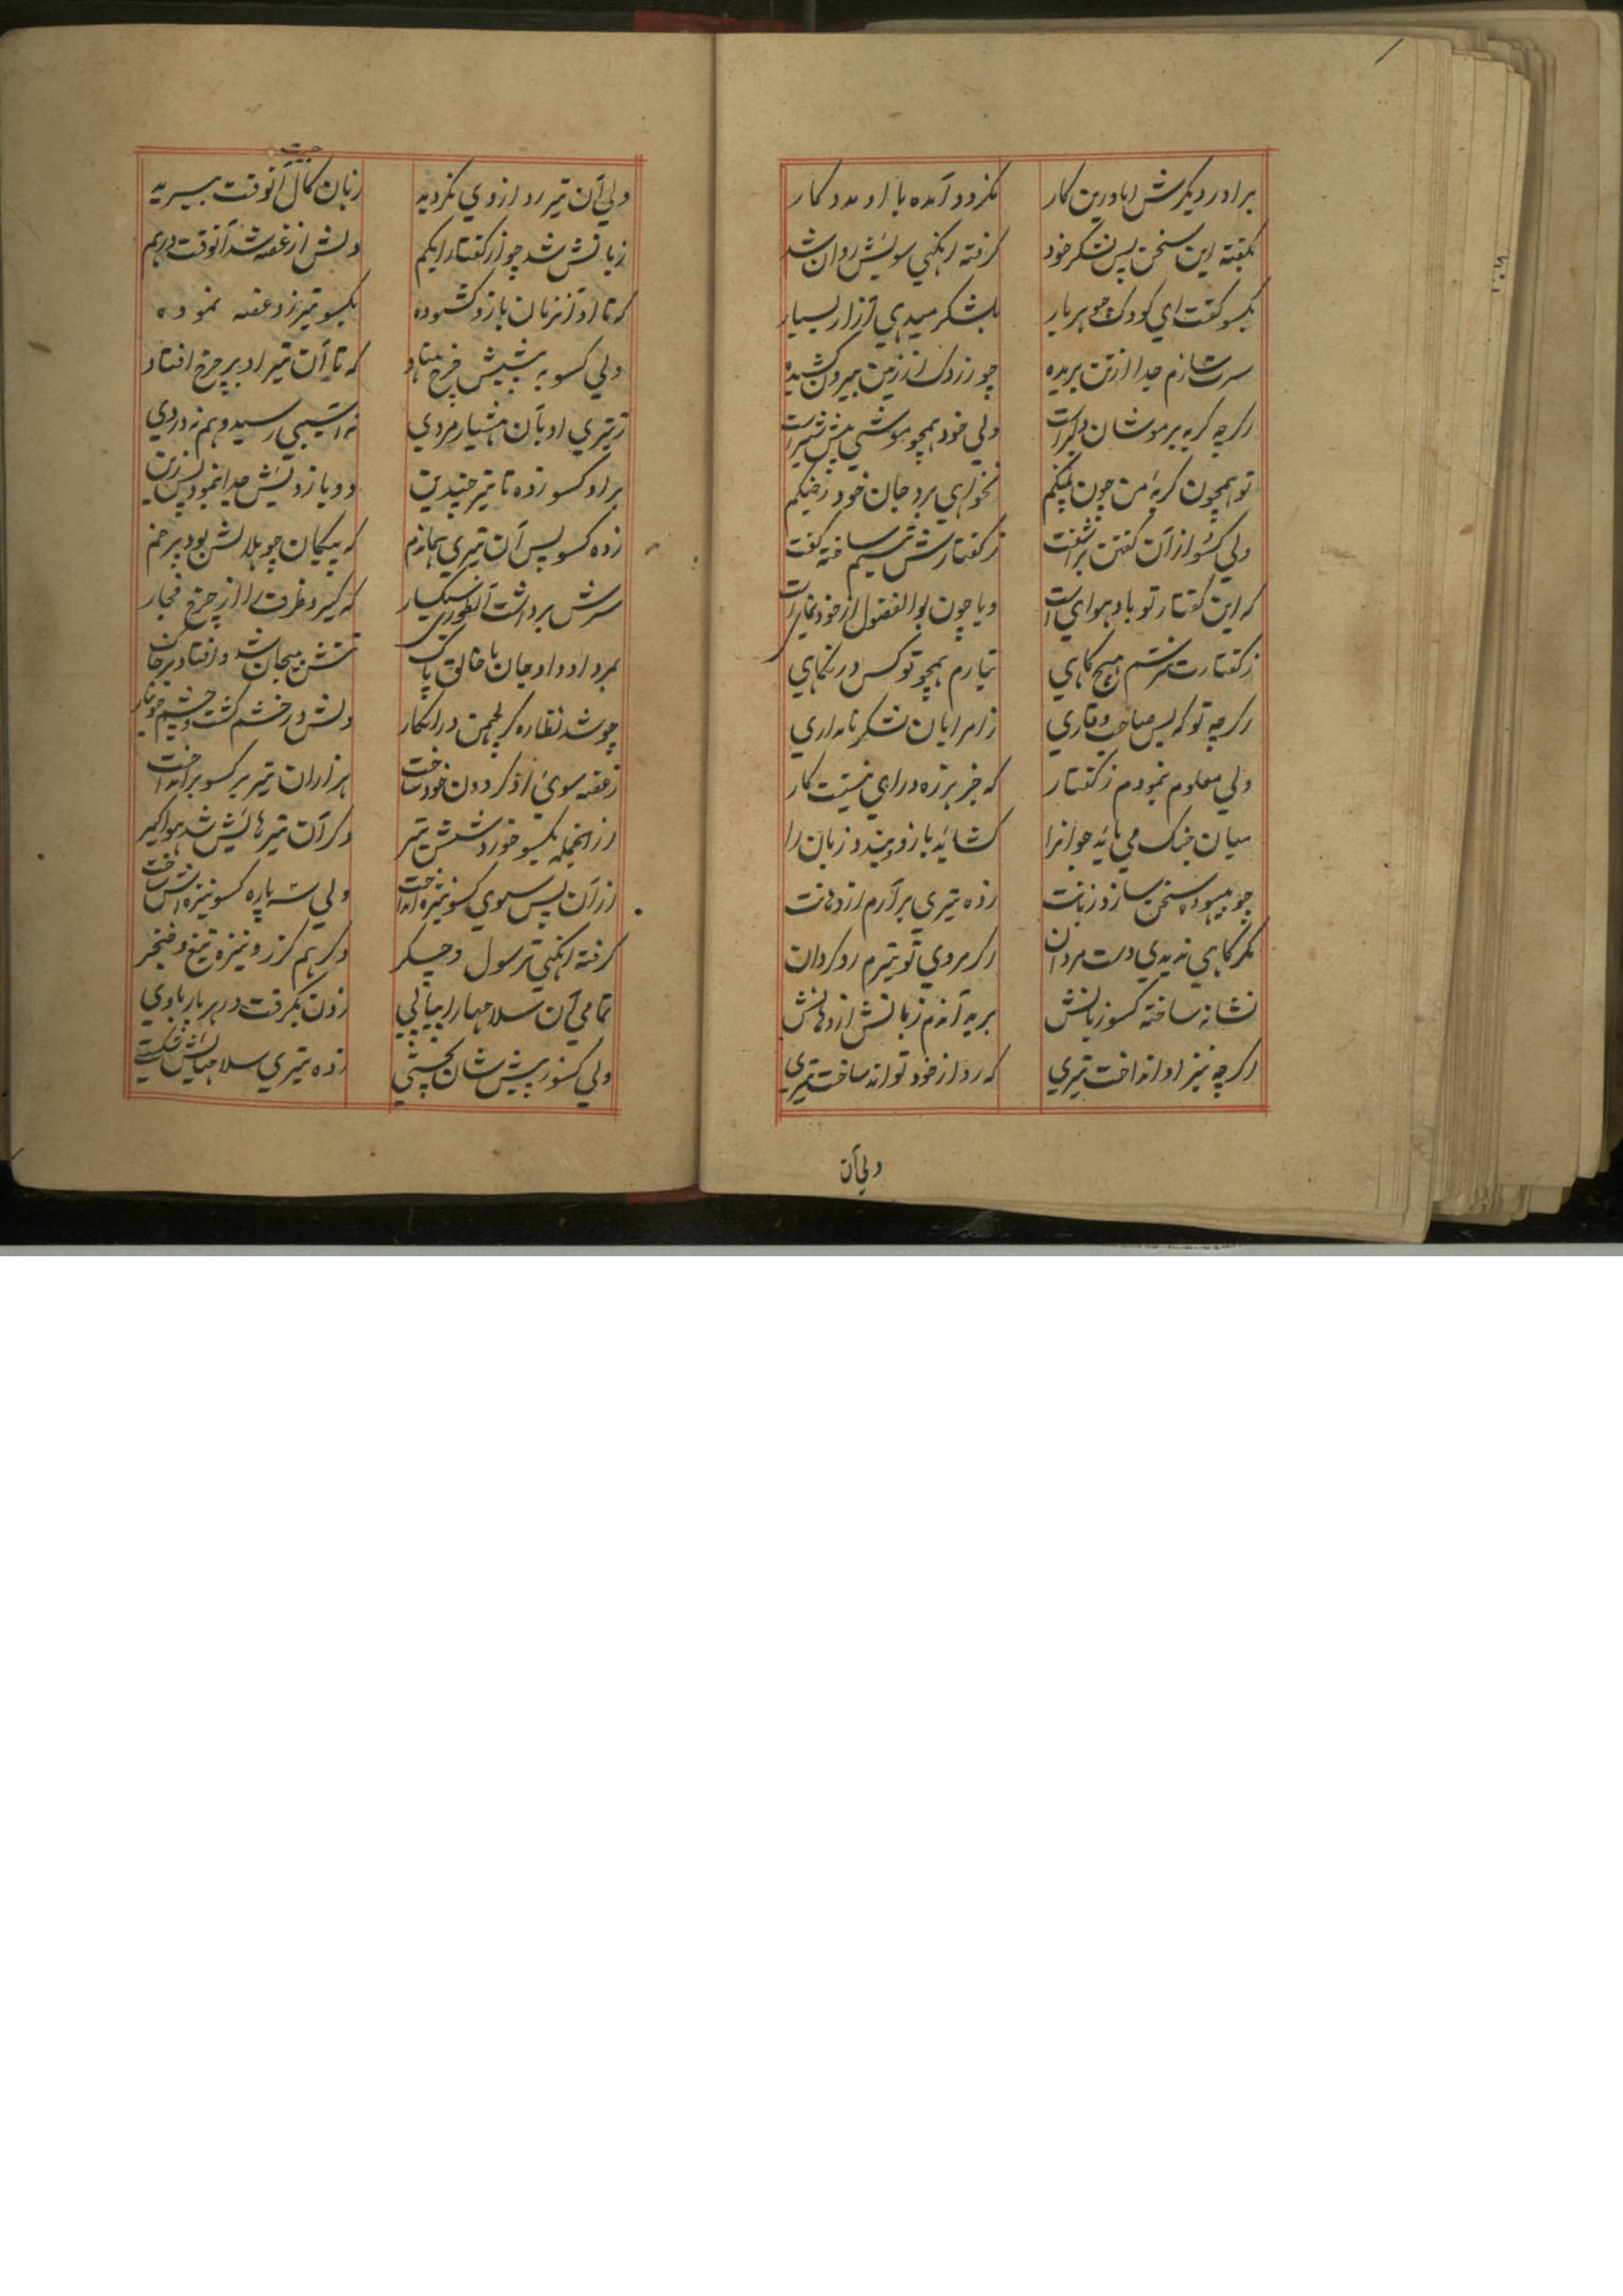 برادر دیکرش اباورین کار نکردد آمده با او مدد کار
بکفته این سخن پس لشکر خود کرفته انکنی سویش روان شد
بکسو کفت ای کودک جو هر بار بلشکر میدهی آزار بسیار
سرت سازم جدا از تن بریده چو زردک از زمین بیرون کشیده
اکرچه کربه بر موشان دلیر است ولی خود همچو موشی پیش شیر است
تو همچون کربهٔ من چون پلنکم نخواهی برد جان خود ز جنکم
ولی کسو از آن کفتن برآشفت ز کفتارش تبسم ساخته کفت
که این کفتار تو باد هوای است ویا چون بوالفضول از خود نمای است
ز کفتارت نترسم هیچ کاهی نیارم همچو تو کس در نکاهی
اکرچه تو که بس صاحب وقاری ز امرایان لشکر نامداری
ولی معلوم نمودم ز کفتار که جز هرزه درای نیست کار
میان جنک می باید جوانرا کشاید بازو و بندد زبان را
چو بیهوده سخن سازد زبانت زده تیری برآرم از دهانت
مکر کاهی ندیدی دست مردان اکر مردی تو تیرم رد کردان
نشانه ساخته کسو زبانش بریدآندم زبانش از دهانش
اکرچه نیز او انداخت تیری که رد از خود تواند ساخت تیری
ولی آن
ولی آن تیر رد از وی نکردید زبان کال آنوقت ببرید
زبانش شد چو از کفتار ابکم دلش از غصه شد آنوقت درهم
که تا او آنزمان بازو کشوده بکسو تیر زد غصه نموده
ولی کسو به پیشش چرخ بنهاد که تا آن تیر او بر چرخ افتاد
ز تیری او بآن هشیار مردی نه آسیبی رسید و هم نه دردی
بر او کسو زده تا تیر چندین دو بازویش جدا نمود پس زین
زده کسو پس آن تیری همانزم که پیکان چو هلالش بود پر خم
سرش برداشت آنطوری سبکسار که کیرد ظرف را از چرخ فخار
بمرد او داد جان با خالق پاک تنش بیجان شد و افتاد بر خاک
چو شد نظاره کر لچمن در انکار دلش در خشم کشت و چشم خونبار
ز غصه سوی او کردون خود تاخت هزاران تیر بر کسو برانداخت
از انجمله بکسو خورد شش تیر دکر آن تیر هایش شد هوا کیر
از آن پس سوی کسو نیزه انداخت ولی سه پاره کسو نیزه اش ساخت
کرفته انکنی ترسول و چکر دکر هم کرز و نیزه تیغ و خنجر
تمامی آن سلاحها را بیاپی زدن بکرفت در هر بار باوی
ولی کسو ز پیش شان بچستی زده تیری سلاحهایش شکستی